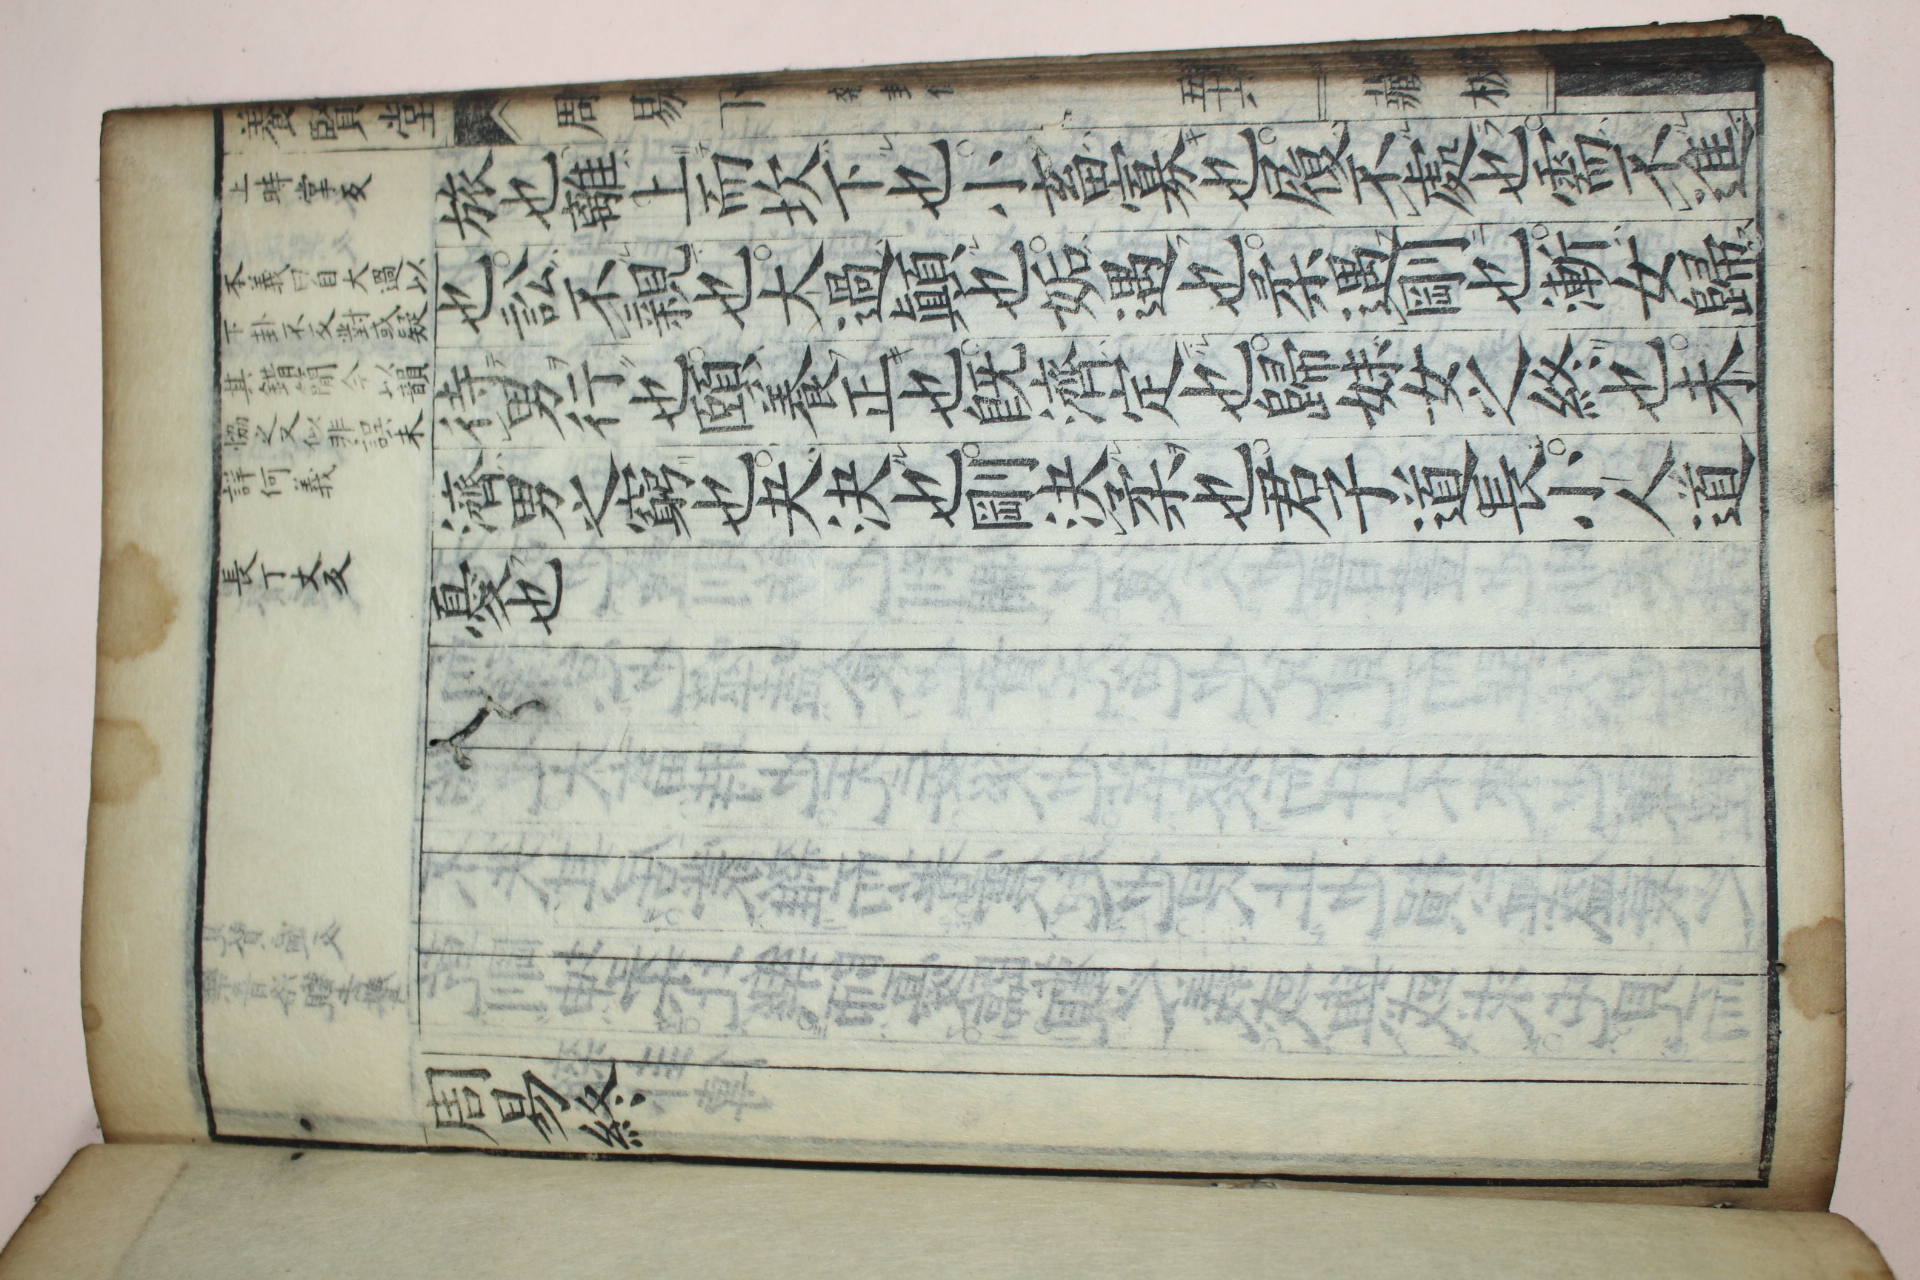 養賢堂
周易下 雜卦傳
藏板
上時掌反
本義曰自大過以
下卦不反對或疑
其錯簡今以韻
協之又似非誤未
詳何義
長丁丈反
旅也離上而坎下也小畜寡也履不處也需不進
也訟不親也大過顛也姤遇也柔遇剛也漸女歸
待男行也頤養正也既濟定也歸妹女之終也未
濟男之窮也夬決也剛決柔也君子道長小人道
憂也
周易終